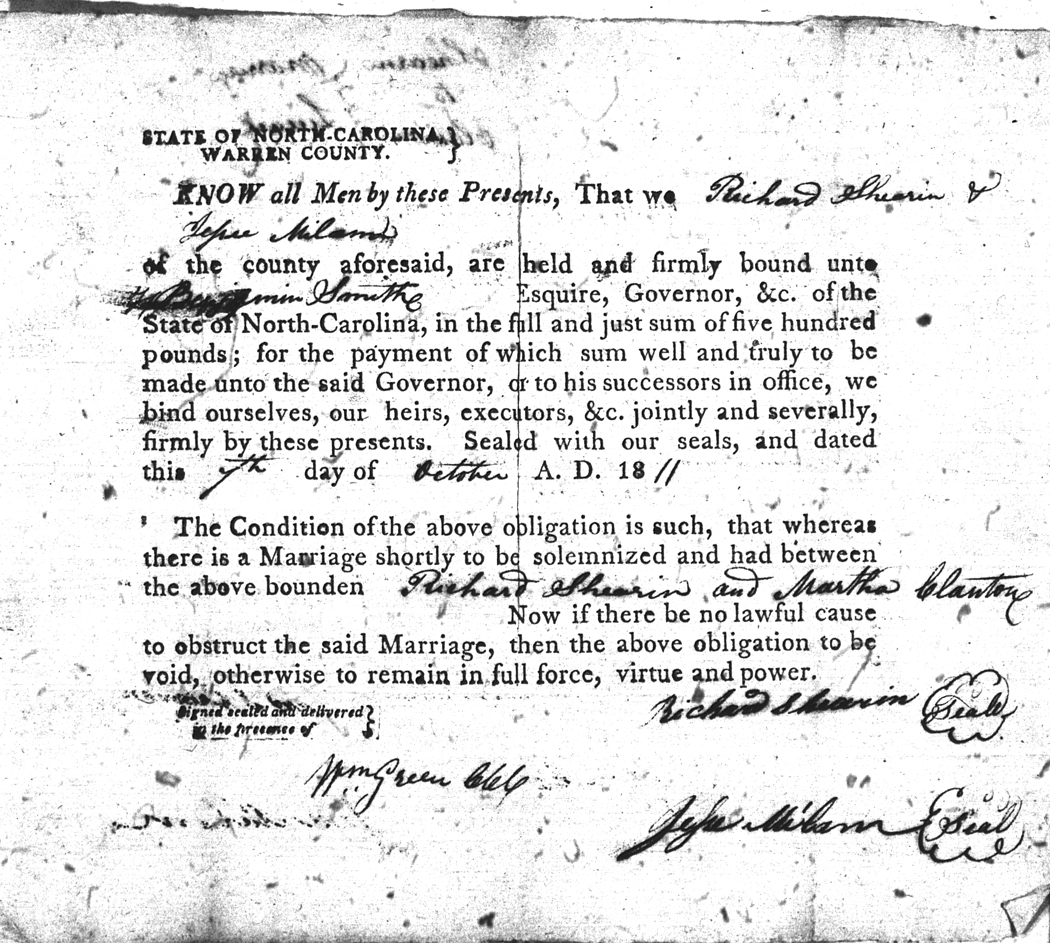 STATE OF NORTH-CAROLINA, }
WARREN COUNTY. }
KNOW all Men by these Presents, That we Richard Shearin &
Jesse Milam
of the county aforesaid, are held and firmly bound unto
Benjamin Smith Esquire, Governor, &c. of the
State of North-Carolina, in the full and just sum of five hundred
pounds; for the payment of which sum well and truly to be
made unto the said Governor, or to his successors in office, we
bind ourselves, our heirs, executors, &c. jointly and severally,
firmly by these presents. Sealed with our seals, and dated
this 7th day of October A. D. 1811
The Condition of the above obligation is such, that whereas
there is a Marriage shortly to be solemnized and had between
the above bounden Richard Shearin and Martha Clanton
Now if there be no lawful cause
to obstruct the said Marriage, then the above obligation to be
void, otherwise to remain in full force, virtue and power.
Signed sealed and delivered }
in the presence of }
Richard Shearin Seal
Wm. Green CCC
Jesse Milam Seal